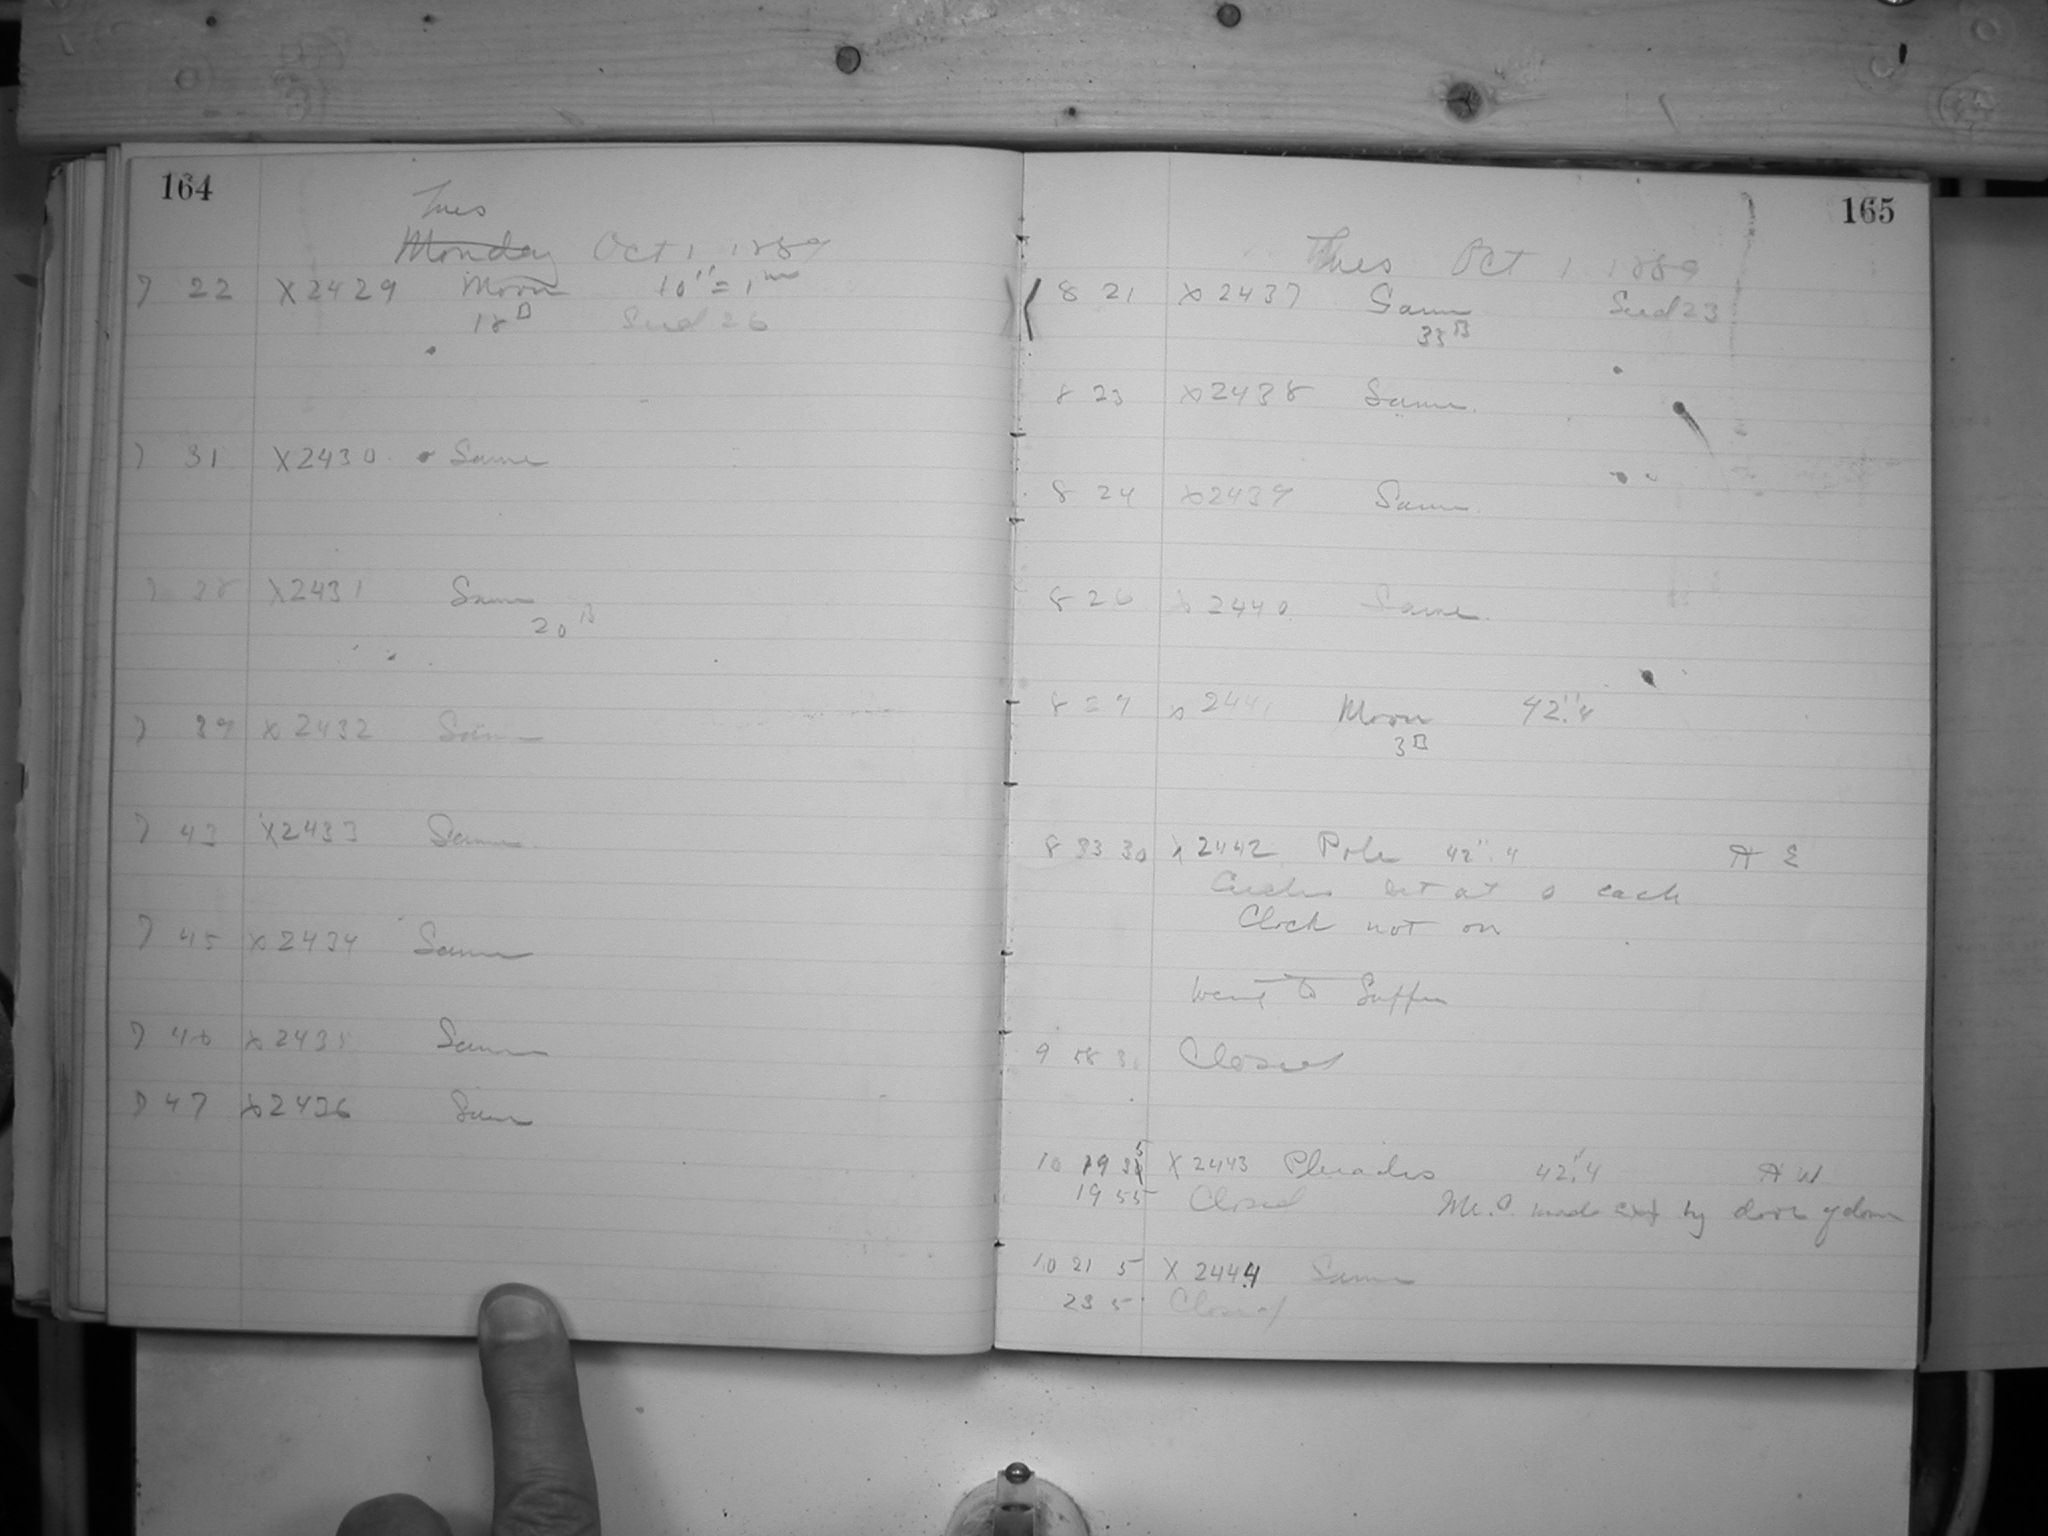 164
Tues
Monday Oct 1 1889
7 22 X2429 Moon 10" = 1mm
18B Seed 26
7 31 X2430 Same
X2431 Same
20B
7 39 X2432 Same
7 43 X2433 Same
7 45 X2434 Same
7 46 X2435 Same
7 47 X2436 Same
165
Tues Oct 1 1889
8 21 X2437 Same Seed 23
33B
8 23 X2438 Same
8 24 X2439 Same
8 26 X2440 Same
8 X2441 Moon 42".4
3B
8 33 30 X2442 Pole 42".4 A E
Circles set at 0 each
Clock not on
Went to Supper
9 58 Closed
10 19 35 X2443 Pleiades 42".4 A W
19 55 Closed Mr. made exp by door of dome
10 21 5 X2444 Same
23 5 Closed